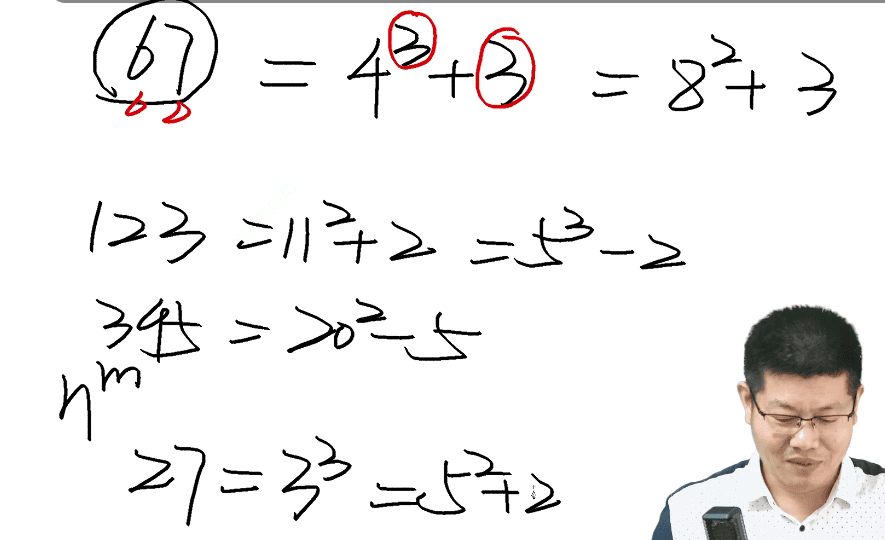 67 = 4³ + 3 = 8² + 3
123 = 11² + 2 = 5³ - 2
395 = 20² - 5
nᵐ
27 = 3³ = 5² + 2